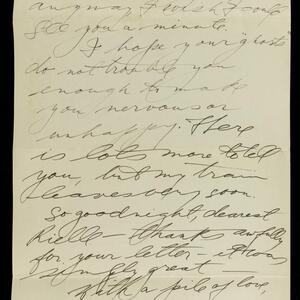 anyway I wish I could
see you a minute.
I hope your "ghosts"
do not trouble you
enough to make
you nervous or
unhappy. There
is lots more to tell
you, but my train
leaves very soon.
So goodnight, dearest
Rielle — thanks awfully
for your letter — it was
simply great —
With a pile of love